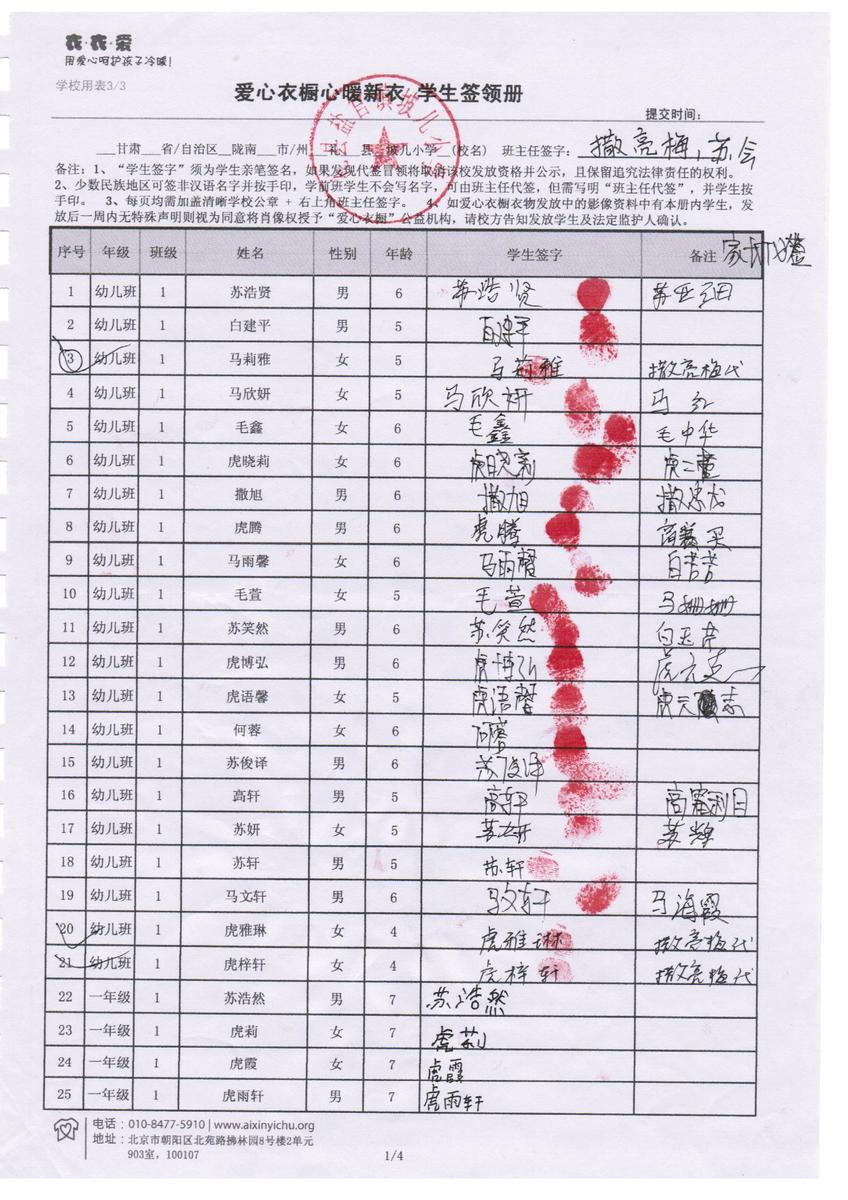 衣·衣·爱
用爱心呵护孩子冷暖!
学校用表3/3
爱心衣橱心暖新衣 学生签领册
提交时间:
___甘肃___省/自治区__陇南___市/州__礼__县__坡儿小学 (校名) 班主任签字: 撒亮梅,苏会
备注:1、“学生签字”须为学生亲笔签名,如果发现代签冒领将取消该校发放资格并公示,且保留追究法律责任的权利。
2、少数民族地区可签非汉语名字并按手印,学前班学生不会写名字,可由班主任代签,但需写明“班主任代签”,并学生按
手印。 3、每页均需加盖清晰学校公章 + 右上角班主任签字。 4、如爱心衣橱衣物发放中的影像资料中有本册内学生,发
放后一周内无特殊声明则视为同意将肖像权授予“爱心衣橱”公益机构,请校方告知发放学生及法定监护人确认。
序号 年级 班级 姓名 性别 年龄 学生签字 备注 家长代签
1 幼儿班 1 苏浩贤 男 6 苏浩贤
2 幼儿班 1 白建平 男 5 白建平
3 幼儿班 1 马莉雅 女 5 马莉雅 撒亮梅代
4 幼儿班 1 马欣妍 女 5 马欣妍 马红
5 幼儿班 1 毛鑫 女 6 毛鑫 毛中华
6 幼儿班 1 虎晓莉 女 6 虎晓莉
7 幼儿班 1 撒旭 男 6 撒旭
8 幼儿班 1 虎腾 男 6 虎腾
9 幼儿班 1 马雨馨 女 6 马雨馨 白芳芳
10 幼儿班 1 毛萱 女 5 毛萱 马姗姗
11 幼儿班 1 苏笑然 男 6 苏笑然
12 幼儿班 1 虎博弘 男 6 虎博弘
13 幼儿班 1 虎语馨 女 5 虎语馨
14 幼儿班 1 何蓉 女 6
15 幼儿班 1 苏俊译 男 6 苏俊译
16 幼儿班 1 高轩 男 5 高轩
17 幼儿班 1 苏妍 女 5 苏妍 苏辉
18 幼儿班 1 苏轩 男 5 苏轩
19 幼儿班 1 马文轩 男 6 马文轩 马海霞
20 幼儿班 1 虎雅琳 女 4 虎雅琳 撒亮梅代
21 幼儿班 1 虎梓轩 女 4 虎梓轩 撒亮梅代
22 一年级 1 苏浩然 男 7 苏浩然
23 一年级 1 虎莉 女 7 虎莉
24 一年级 1 虎霞 女 7 虎霞
25 一年级 1 虎雨轩 男 7 虎雨轩
电话:010-8477-5910 | www.aixinyichu.org
地址:北京市朝阳区北苑路拂林园8号楼2单元
903室,100107
1/4